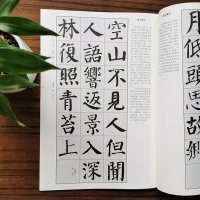 月低頭思故鄉
空山不見人但聞
人語響返景入深
林復照青苔上